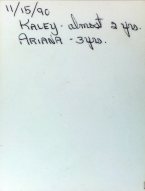 11/15/90
KALEY - almost 2 yrs.
ARIANA - 3yrs.